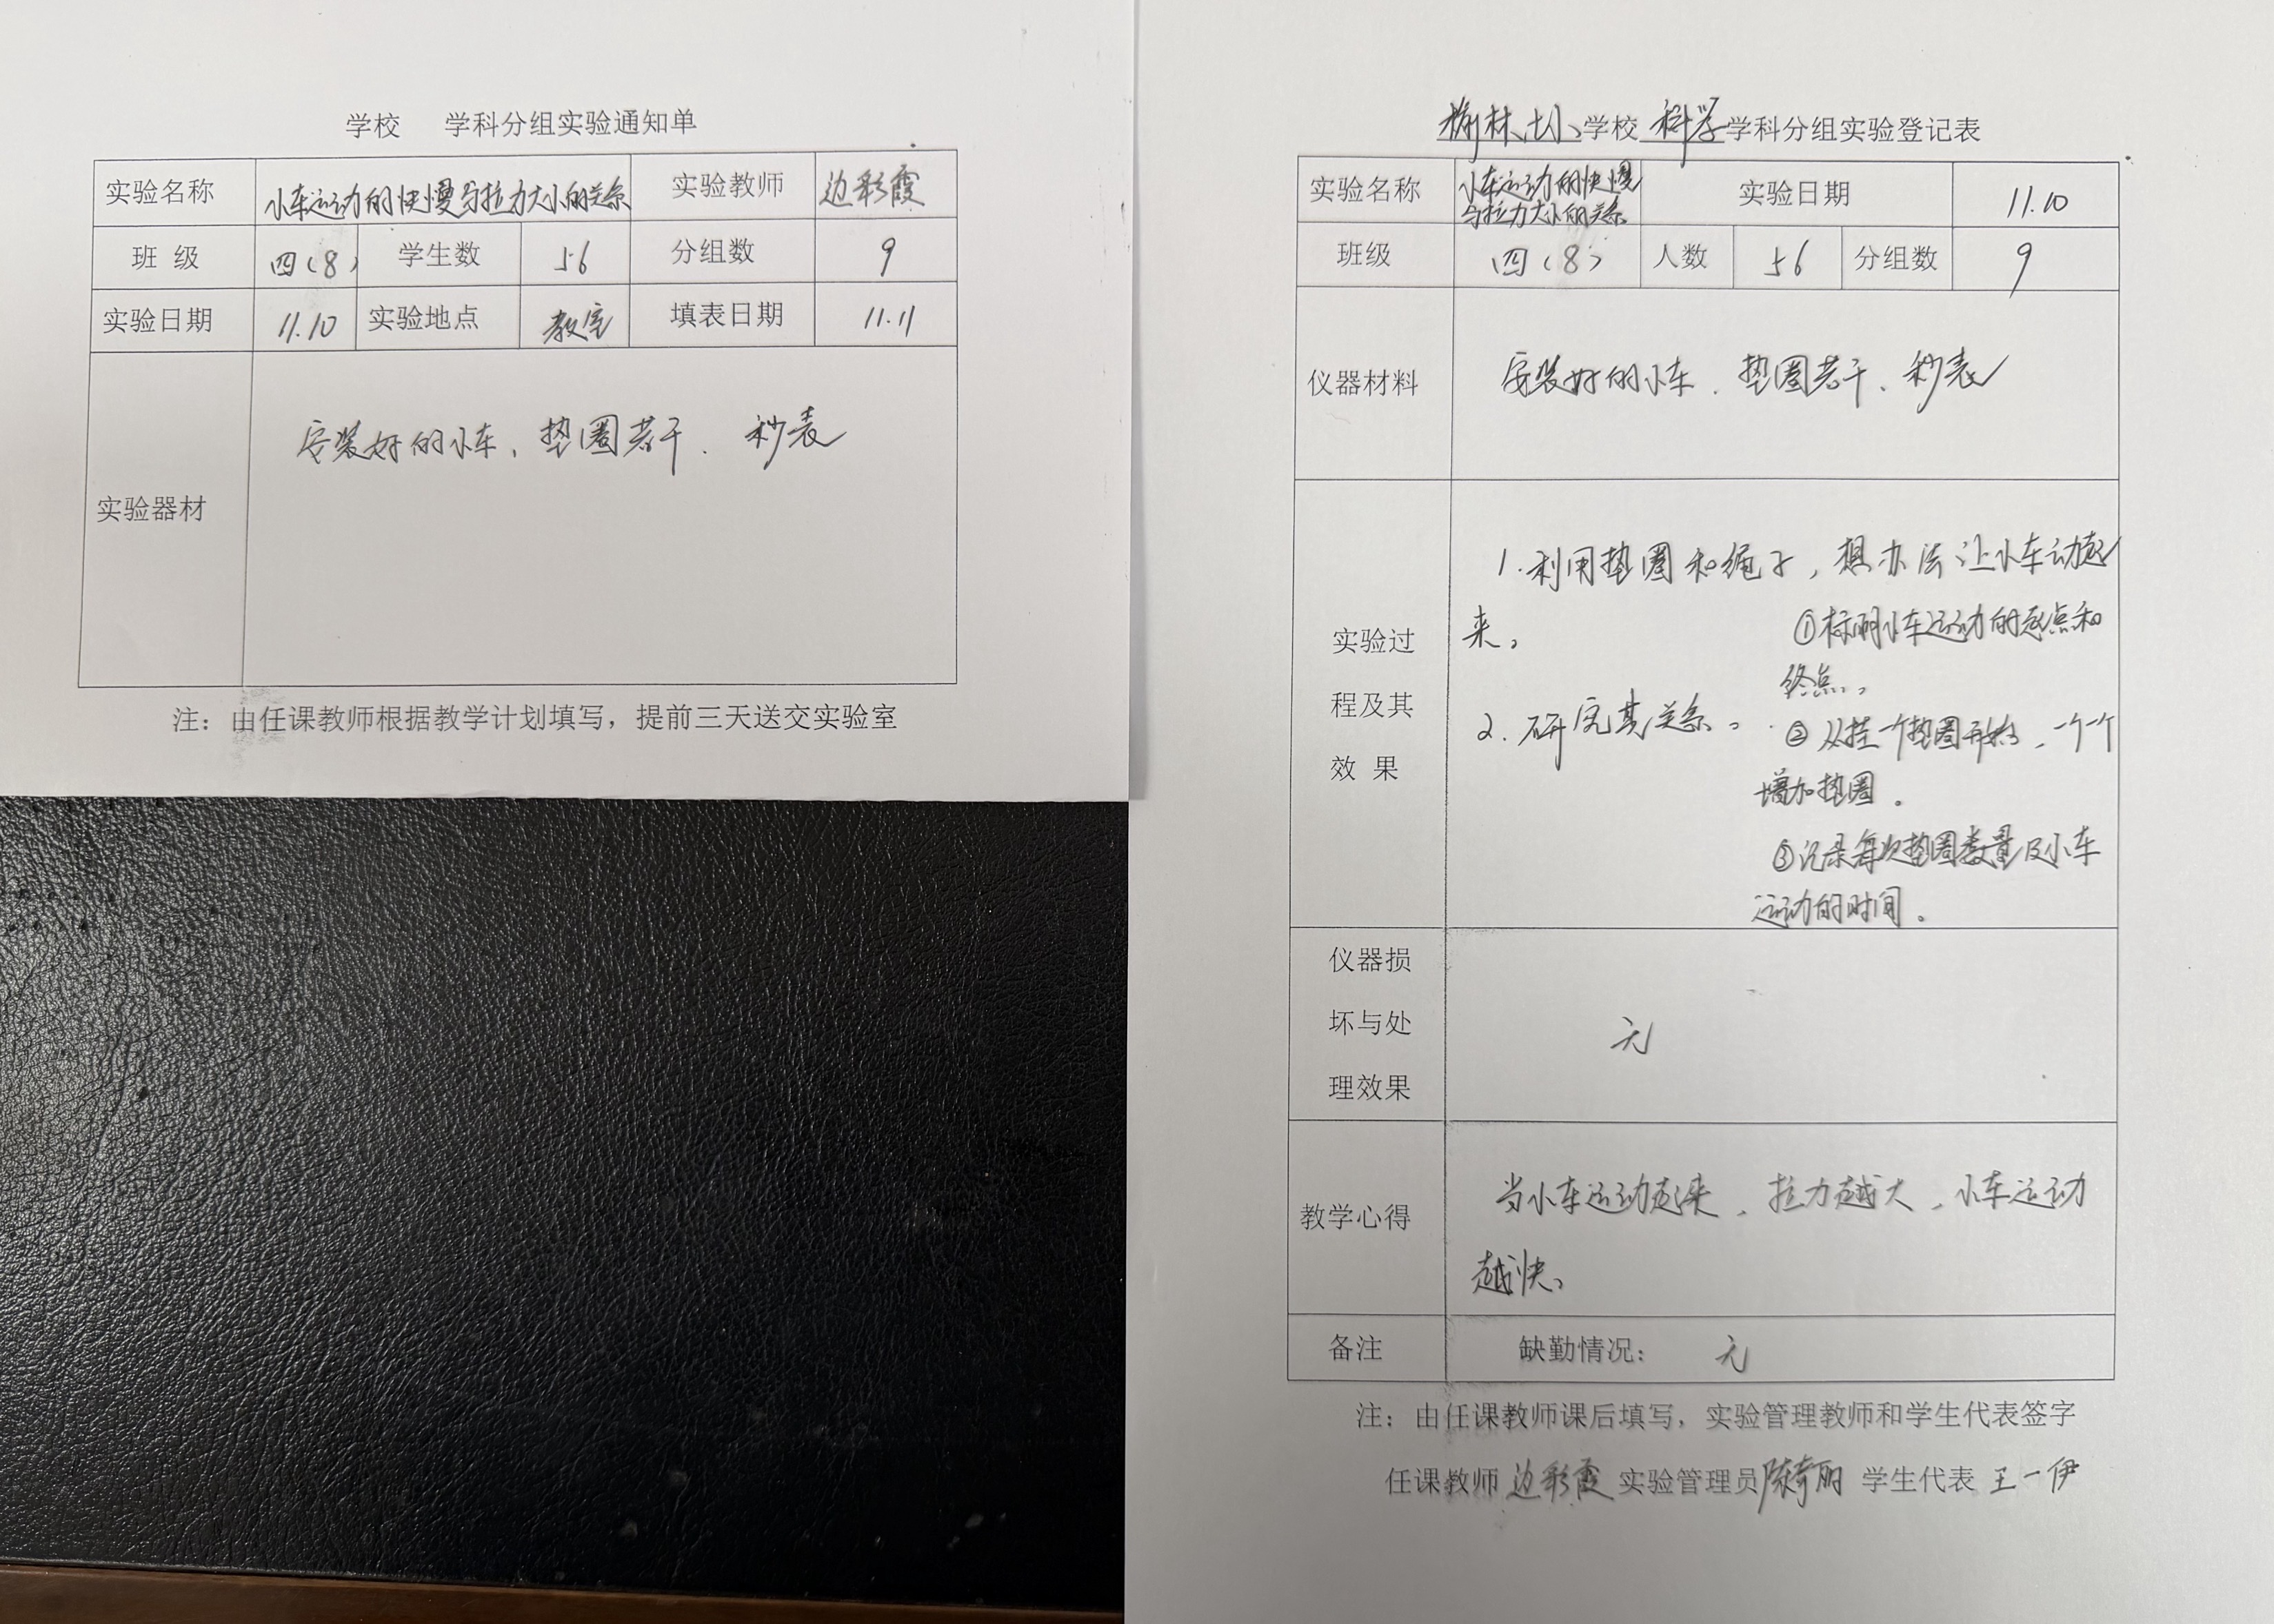 学校 学科分组实验通知单
实验名称 小车运动的快慢与拉力大小的关系 实验教师 边彩霞
班 级 四(8) 学生数 56 分组数 9
实验日期 11.10 实验地点 教室 填表日期 11.11
实验器材 安装好的小车、垫圈若干、秒表
注：由任课教师根据教学计划填写，提前三天送交实验室
榆林 小学校 科学学科分组实验登记表
实验名称 小车运动的快慢 实验日期 11.10
与拉力大小的关系
班级 四(8) 人数 56 分组数 9
仪器材料 安装好的小车、垫圈若干、秒表
实验过
程及其
效 果
1.利用垫圈和绳子，想办法让小车动起
来。
2.研究其关系。
①标明小车运动的起点和
终点。
②从挂一个垫圈开始，一个个
增加垫圈。
③记录每次垫圈数量及小车
运动的时间。
仪器损
坏与处
理效果
无
教学心得
当小车运动起来，拉力越大，小车运动
越快。
备注 缺勤情况： 无
注：由任课教师课后填写，实验管理教师和学生代表签字
任课教师 边彩霞 实验管理员 陈奇丽 学生代表 王一伊